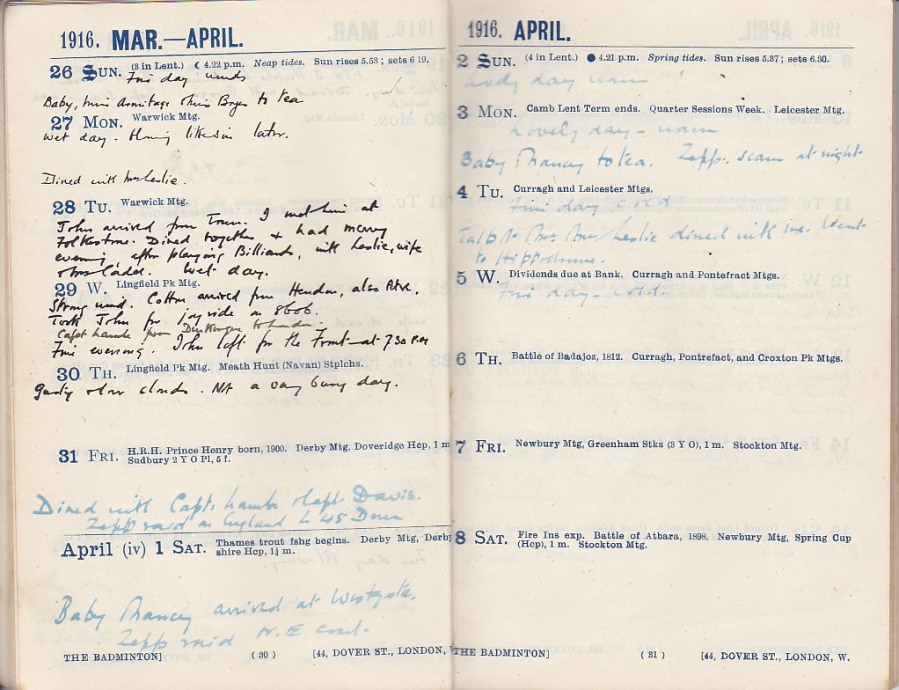 1916. MAR.—APRIL.
26 SUN. (3 in Lent.) ☾ 4.22 p.m. Neap tides. Sun rises 5.53; sets 6.19.
Fine day winds
Baby, Armitage to tea
27 MON. Warwick Mtg.
Wet day. later.
Dined with Mrs Leslie.
28 TU. Warwick Mtg.
John arrived from Town. I met him at
Folkestone. Dined together & had merry
evening, after playing Billiards, with Leslie, wife
Wet day.
29 W. Lingfield Pk Mtg.
Strong wind. arrived from Hendon, also
Took John for joy ride on 8606.
Capt Lambe from Dunkerque to London.
Fine evening. John left for the Front at 7.30 P.M
30 TH. Lingfield Pk Mtg. Meath Hunt (Navan) Stplchs.
Gusty & low clouds. Not a very busy day.
31 FRI. H.R.H. Prince Henry born, 1900. Derby Mtg, Doveridge Hcp, 1 m
Sudbury 2 Y O Pl, 5 f.
Dined with Capt. Lambe & Capt Davis.
Zepp raid on England L 15 Down
April (iv) 1 SAT. Thames trout fshg begins. Derby Mtg, Derby
shire Hcp, 1½ m.
Baby & Nancy arrived at Westgate.
Zepp raid N.E coast.
THE BADMINTON] ( 30 ) [44, DOVER ST., LONDON,
1916. APRIL.
2 SUN. (4 in Lent.) ● 4.21 p.m. Spring tides. Sun rises 5.37; sets 6.30.
Lovely day warm
3 MON. Camb Lent Term ends. Quarter Sessions Week. Leicester Mtg.
Lovely day - warm
Baby & Nancy to tea. Zepp. scare at night
4 TU. Curragh and Leicester Mtgs.
Fine day cold
Leslie dined with me. Went
to Hippodrome.
5 W. Dividends due at Bank. Curragh and Pontefract Mtgs.
Fine day - cold.
6 TH. Battle of Badajoz, 1812. Curragh, Pontrefact, and Croxton Pk Mtgs.
7 FRI. Newbury Mtg, Greenham Stks (3 Y O), 1 m. Stockton Mtg.
8 SAT. Fire Ins exp. Battle of Atbara, 1898. Newbury Mtg, Spring Cup
(Hcp), 1 m. Stockton Mtg.
THE BADMINTON] ( 31 ) [44, DOVER ST., LONDON, W.